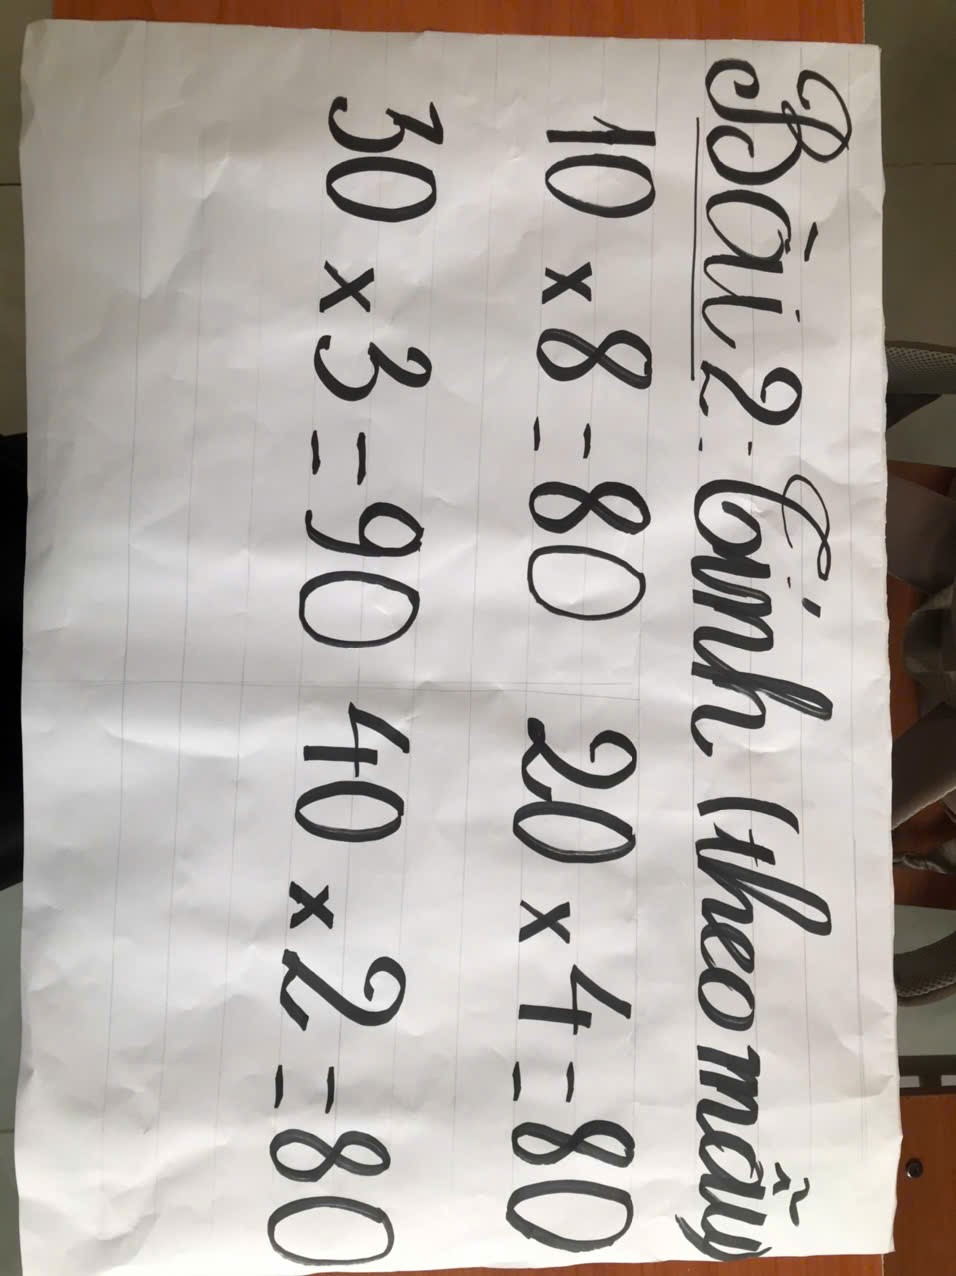 Bài 2: Tính (theo mẫu)
10 × 8 = 80 20 × 4 = 80
30 × 3 = 90 40 × 2 = 80